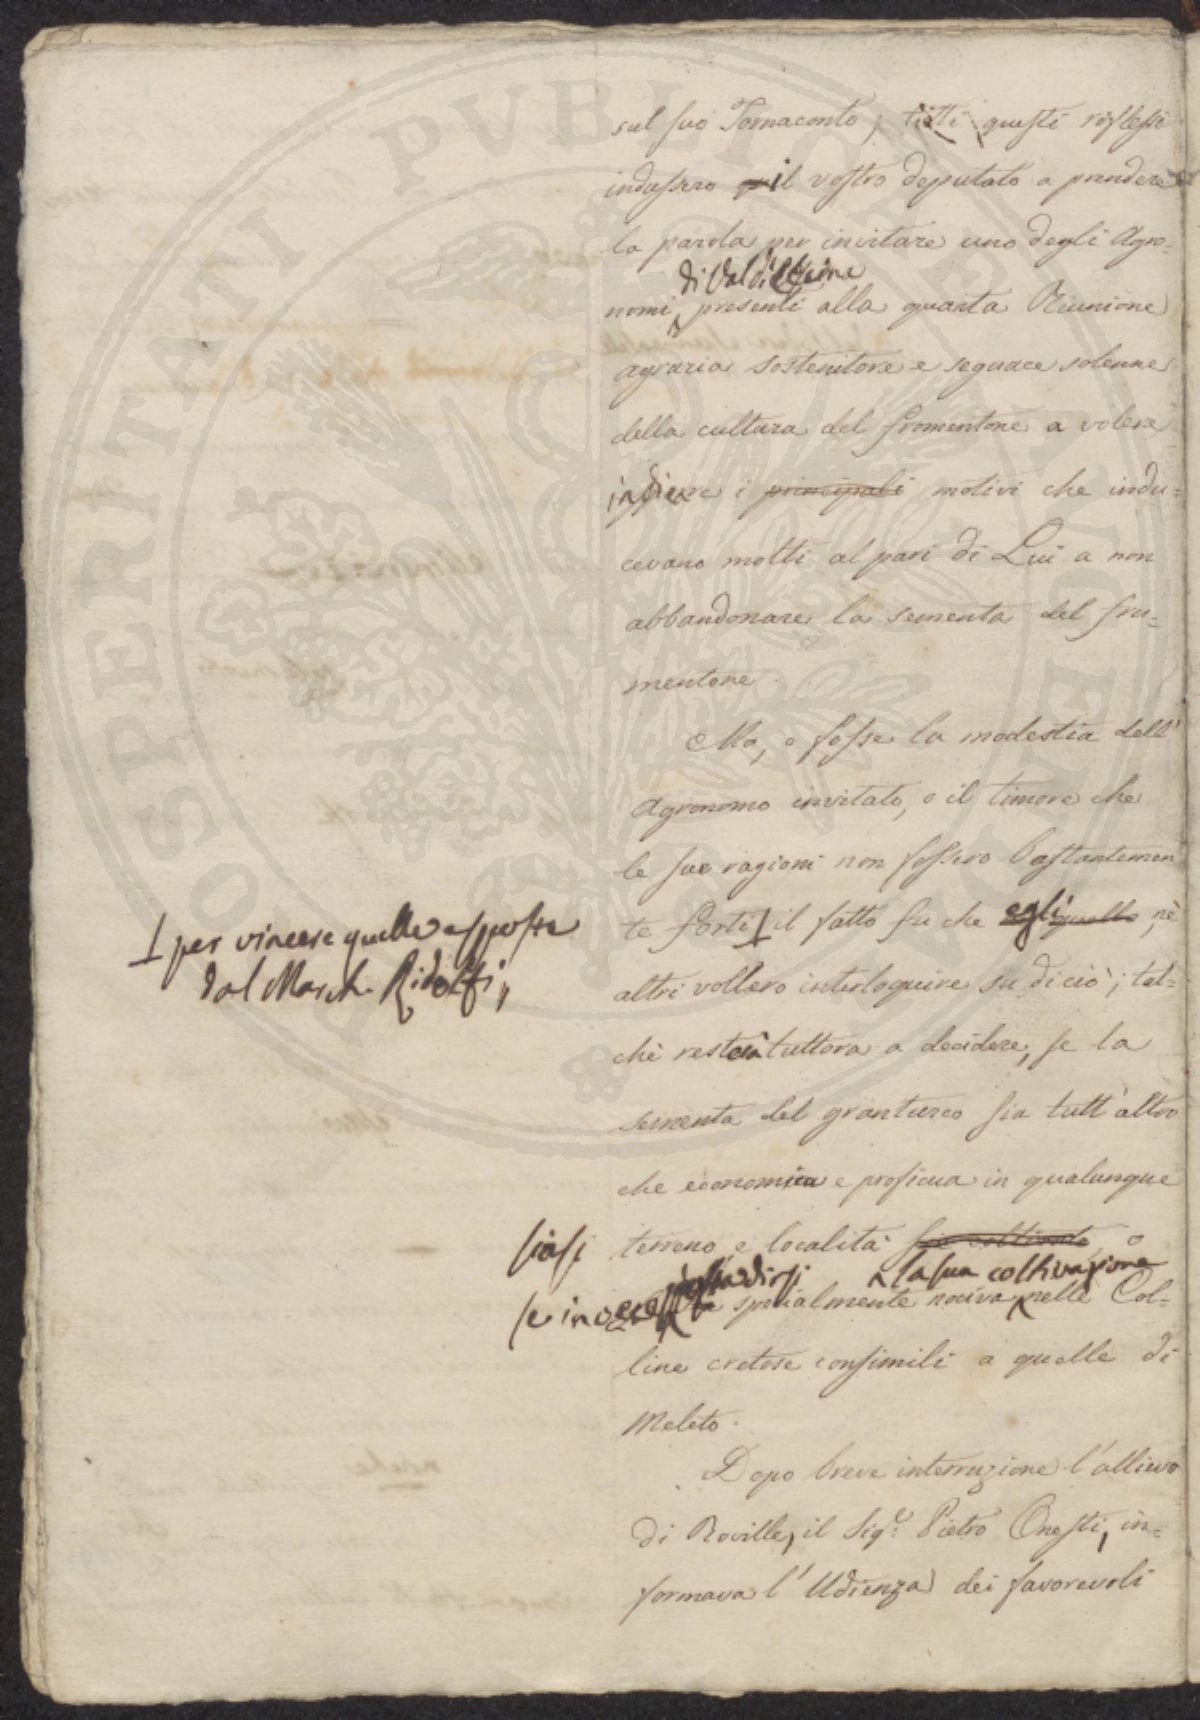 sul suo Tornaconto, tutti questi riflessi
indussero il vostro deputato a prendere
la parola per invitare uno degli Agro=
di Valdelsa
nomi presenti alla quarta Riunione
agraria sostenitore e seguace solenne
della cultura del fromentone a volere
indicare i principali motivi che indu=
cevano molti al pari di Lui a non
abbandonare la sementa del fru=
mentone.
Ma, o fosse la modestia dell'
Agronomo invitato, o il timore che
le sue ragioni non fossero bastantemen
te forti ⊥ il fatto fu che egli quello, nè
⊥ per vincere quelle esposte
dal March. Ridolfi,,
altri vollero interloquire su di ciò; tal=
chè resterà tuttora a decidere, se la
sementa del granturco sia tutt'altro
che economica e proficua in qualunque
siasi terreno e località sia coltivato o
la sua coltivazione
se invece specialmente nociva nelle Col=
line cretose consimili a quelle di
Meleto.
Dopo breve interruzione l'allievo
di Roville, il Sig.e Pietro Onesti, in=
formava l'Udienza dei favorevoli
PVBLICAE
PROSPERITATI